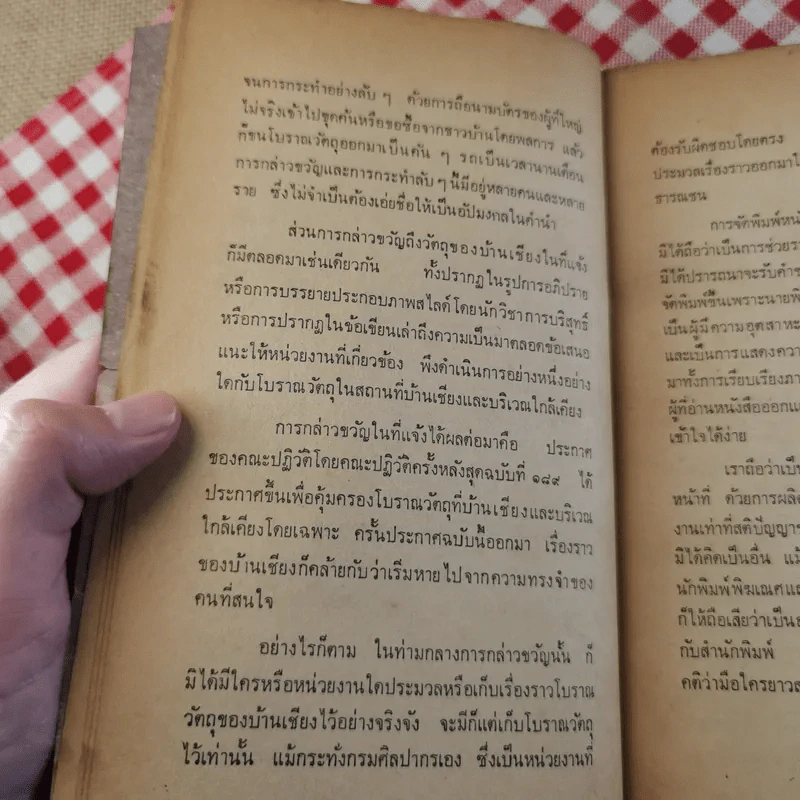 จนการกระทำอย่างลับ ๆ ด้วยการถือนามบัตรของผู้ที่ใหญ่
ไม่จริงเข้าไปขุดค้นหรือขอซื้อจากชาวบ้านโดยพลการ แล้ว
ก็ขนโบราณวัตถุออกมาเป็นคัน ๆ รถเป็นเวลานานเดือน
การกล่าวขวัญและการกระทำลับ ๆ นี้มีอยู่หลายคนและหลาย
ราย ซึ่งไม่จำเป็นต้องเอ่ยชื่อให้เป็นอัปมงคลในคำนำ
ส่วนการกล่าวขวัญถึงวัตถุของบ้านเชียงในที่แจ้ง
ก็มีตลอดมาเช่นเดียวกัน ทั้งปรากฏในรูปการอภิปราย
หรือการบรรยายประกอบภาพสไลด์โดยนักวิชาการบริสุทธิ์
หรือการปรากฏในข้อเขียนเล่าถึงความเป็นมาตลอดข้อเสนอ
แนะให้หน่วยงานที่เกี่ยวข้อง พึงดำเนินการอย่างหนึ่งอย่าง
ใดกับโบราณวัตถุในสถานที่บ้านเชียงและบริเวณใกล้เคียง
การกล่าวขวัญในที่แจ้งได้ผลต่อมาคือ ประกาศ
ของคณะปฏิวัติโดยคณะปฏิวัติครั้งหลังสุดฉบับที่ ๑๘๙ ได้
ประกาศขึ้นเพื่อคุ้มครองโบราณวัตถุที่บ้านเชียงและบริเวณ
ใกล้เคียงโดยเฉพาะ ครั้นประกาศฉบับนี้ออกมา เรื่องราว
ของบ้านเชียงก็คล้ายกับว่าเริ่มหายไปจากความทรงจำของ
คนที่สนใจ
อย่างไรก็ตาม ในท่ามกลางการกล่าวขวัญนั้น ก็
มิได้มีใครหรือหน่วยงานใดประมวลหรือเก็บเรื่องราวโบราณ
วัตถุของบ้านเชียงไว้อย่างจริงจัง จะมีก็แต่เก็บโบราณวัตถุ
ไว้เท่านั้น แม้กระทั่งกรมศิลปากรเอง ซึ่งเป็นหน่วยงานที่
ต้องรับผิดชอบโดยตรง
ประมวลเรื่องราวออกมา
ธารณชน
การจัดพิมพ์
มิได้ถือว่าเป็นการช่วย
มิได้ปรารถนาจะรับ
จัดพิมพ์ขึ้นเพราะนาย
เป็นผู้มีความอุตสาหะ
และเป็นการแสดงความ
มาทั้งการเรียบเรียง
ผู้ที่อ่านหนังสือออก
เข้าใจได้ง่าย
เราถือว่าเป็น
หน้าที่ ด้วยการผลิต
งานเท่าที่สติปัญญา
มิได้คิดเป็นอื่น แม้
นักพิมพ์พิฆเณศ
ก็ให้ถือเสียว่าเป็น
กับสำนักพิมพ์
คติว่ามือใครยาว